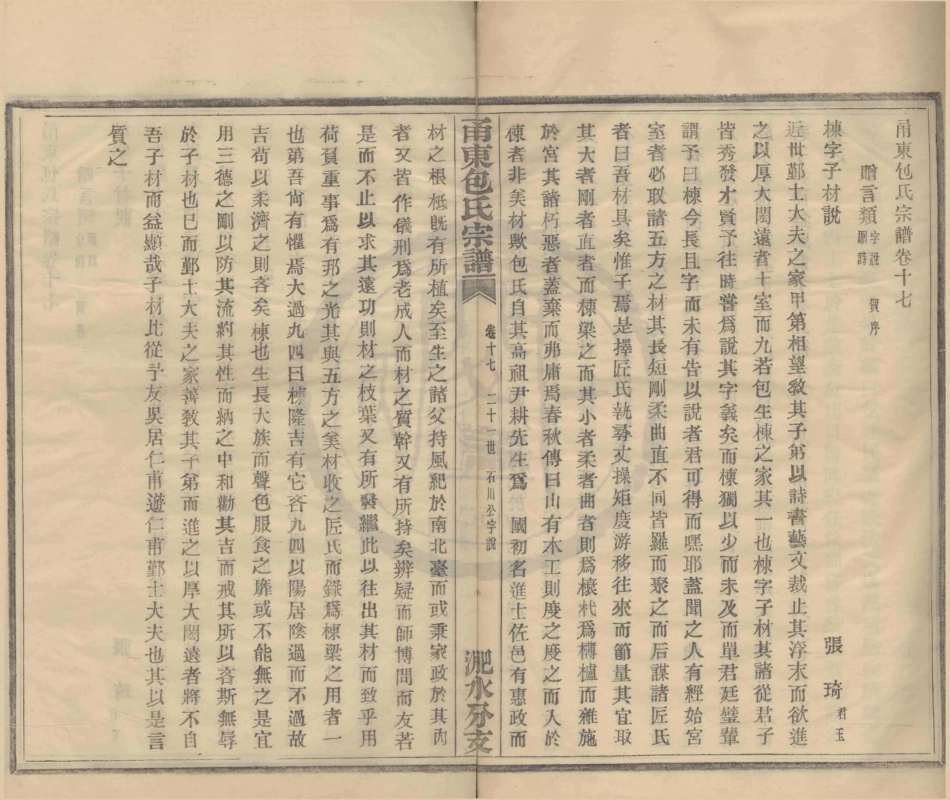 甬東包氏宗譜卷十七
贈言類 字說 賀序 贈詩
棟字子材說 張琦 君玉
近世鄞士大夫之家甲第相望敎其子弟以詩書藝文裁止其浮末而欲進
之以厚大閎遠者十室而九若包生棟之家其一也棟字子材其諸從君子
皆秀發才賢予往時嘗爲說其字義矣而棟獨以少而未及而單君廷璧輩
謂予曰棟今長且字而未有告以說者君可得而嘿耶蓋聞之人有經始宮
室者必取諸五方之材其長短剛柔曲直不同皆羅而聚之而后謀諸匠氏
者曰吾材具矣惟子焉是擇匠氏執尋丈操矩度游移往來而節量其宜取
其大者剛者直者而棟梁之而其小者柔者曲者則爲榱杙爲欂櫨而雜施
於宮其諸朽惡者蓋棄而弗庸焉春秋傳曰山有木工則度之度之而入於
棟者非美材歟包氏自其高祖尹耕先生爲 國初名進士佐邑有惠政而
甬東包氏宗譜 卷十七 二十一世 石川公字說 淝水分支
材之根柢旣有所植矣至生之諸父持風紀於南北臺而或秉家政於其內
者又皆作儀刑爲老成人而材之質幹又有所持矣辨疑而師博問而友若
是而不止以求其遠功則材之枝葉又有所繫繼此以往出其材而致乎用
荷負重事爲有邦之光其與五方之美材收之匠氏而錄爲棟梁之用者一
也第吾尙有懼焉大過九四曰棟隆吉有它吝九四以陽居陰過而不過故
吉苟以柔濟之則吝矣棟也生長大族而聲色服食之靡或不能無之是宜
用三德之剛以防其流約其性而納之中和勸其吉而戒其所以吝斯無辱
於子材也已而鄞士大夫之家善敎其子弟而進之以厚大閎遠者將不自
吾子材而益顯哉子材比從予友吳居仁甫遊仁甫鄞士大夫也其以是言
質之